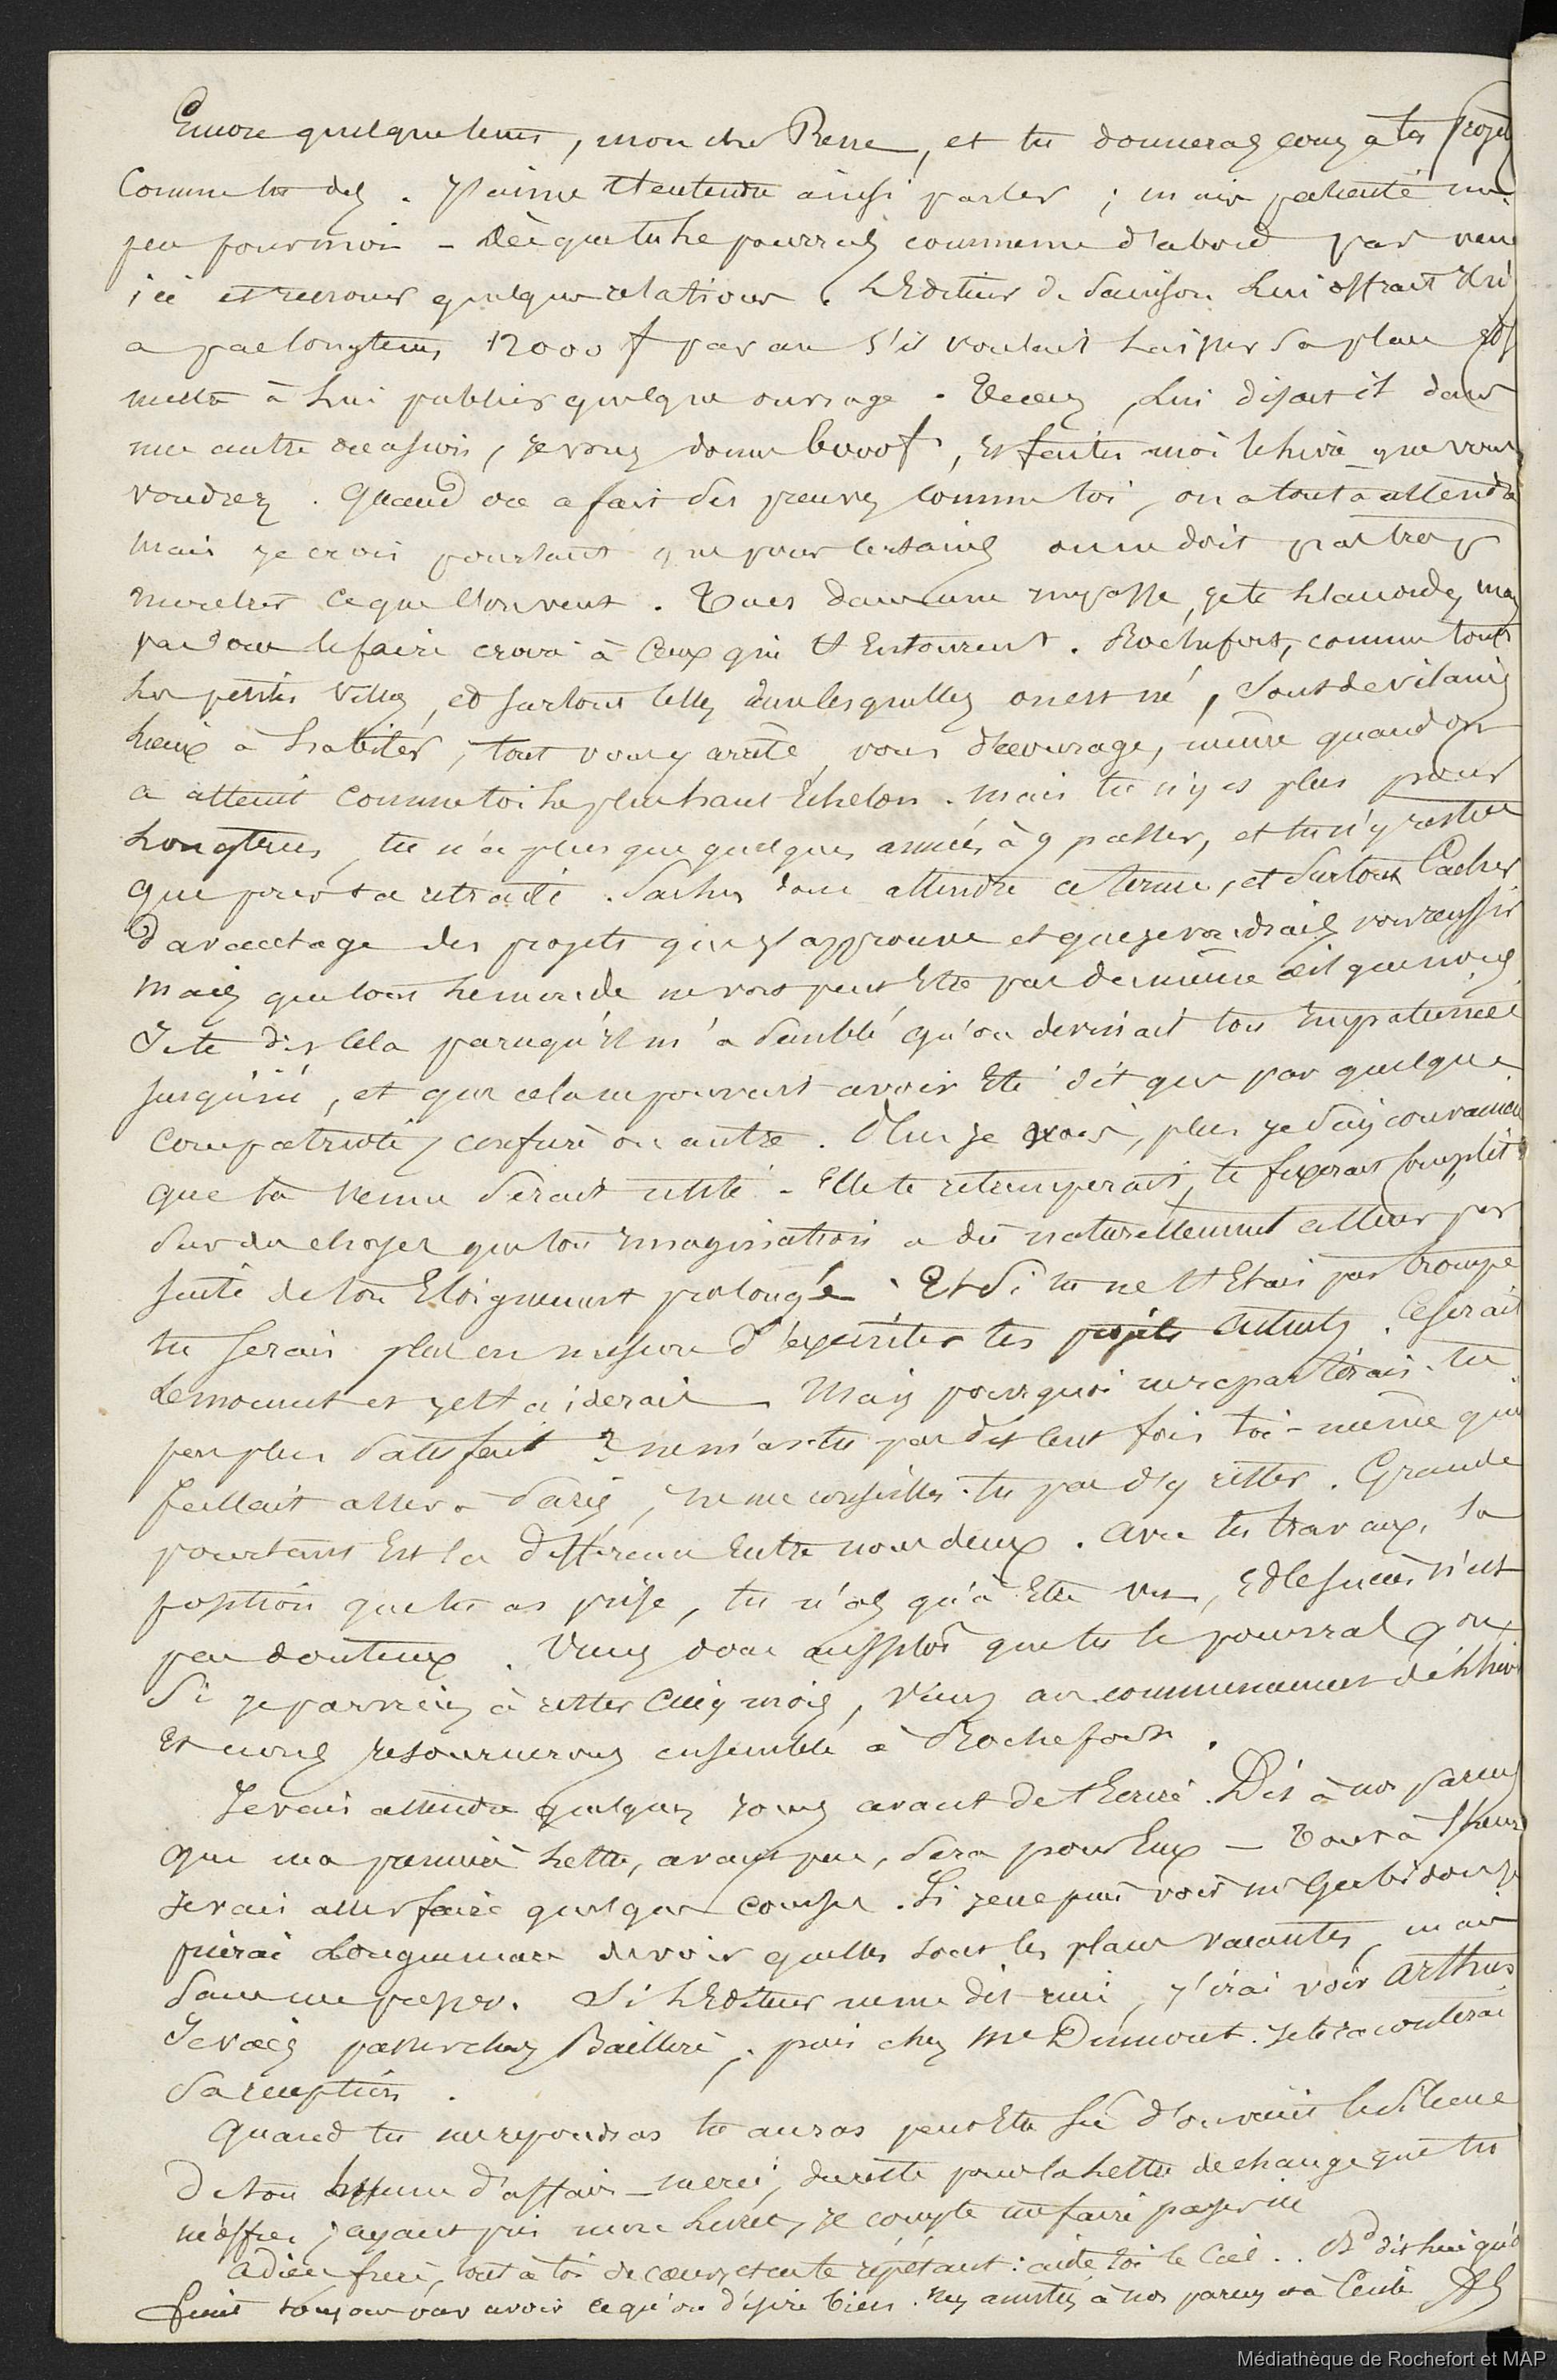 Encore quelque tems, mon cher Rene, et tu donneras cours à tes projets
Comme tu dis. J'aime t'entendre ainsi parler ; mais patiente un
peu pour moi - Dès que tu le pourras commence d'abord par venir
ici et renouer quelques relations. L'Editeur de lui offrait il n'y
a pas longtems 12000 f par an s'il voulait laisser sa place et se
mettre à lui publier quelque ouvrage. Tenez, lui disait il dans
une autre occasion, je vous donne 6000 f, et faites moi le livre que vous
voudrez. Quand on a fait ses preuves comme toi, on a tout à attendre
mais je crois pourtant que pour certains on ne doit pas trop
montrer ce que l'on veut. Tu es dans une impasse, je te l'accorde, mais
pas pour le faire croire à ceux qui t'entourent. Rochefort, comme toutes
les petites villes, et surtout celles dans lesquelles on est né, sont de vilains
lieux à habiter, tout vous y arrête, vous décourage, même quand on
a atteint comme toi le plus haut échelon. Mais tu n'y es plus pour
longtems, tu n'as plus que quelques années à y passer, et tu n'y restes
que pour ta retraite. Saches donc attendre ce terme, et surtout cacher
davantage des projets que j'approuve et que je voudrais voir réussir
mais que tout le monde ne voit peut être pas du même œil que nous
Je te dis cela parcequ'il m'a semblé qu'on devinait ton impatience
jusqu'ici, et que cela ne pouvait avoir été dit que par quelque
compatriote, confrère ou autre. Plus je vois, plus je suis convaincu
que ta venue serait utile. - Elle te retremperait, te fixerait
sur des choses que ton imagination a dû naturellement altérer par
suite de ton éloignement prolongé. Et si tu ne t'étais pas trompé
tu serais plus en mesure d'exécuter tes projets actuels. Ce serait
le moment et je t'aiderais - Mais pourquoi ne repartirais-tu
pas plus satisfait ? ne m'as tu pas dit cent fois toi-même qu'il
fallait aller à Paris, ne me conseilles-tu pas d'y rester. Grande
pourtant est la différence entre nous deux. Avec tes travaux, la
position que tu as prise, tu n'as qu'à être vu, et le succès n'est
pas douteux. Viens donc aussitôt que tu le pourras, ou
si je parviens à rester cinq mois, viens au commencement de l'hiver
et nous retournerons ensemble à Rochefort.
Je vais attendre quelques jours avant de t'écrire. Dis à nos parens
que ma première lettre, avant peu, sera pour eux - Tout à l'heure
je vais aller faire quelques courses. Si je ne puis voir je
prierai de voir quelles sont les places vacantes, mais
sans me presser. Si l'Editeur ne me dit rien, j'irai voir Arthus
Je vais passer chez Baillière, puis chez Me Dumont. Je te raconterai
sa reception.
Quand tu me repondras tu auras peut être su d'où vient le silence
de ton homme d'affaires - merci, du reste pour la lettre de change que tu
m'offres, ayant pris mon livret, je compte me faire payer ici
Adieu frère, tout à toi de cœur, et en te répétant : aide toi le Ciel.. dit lui qu'on
finit toujours par avoir ce qu'on désire bien. Mes amitiés à nos parens et à Cécile
Médiathèque de Rochefort et MAP